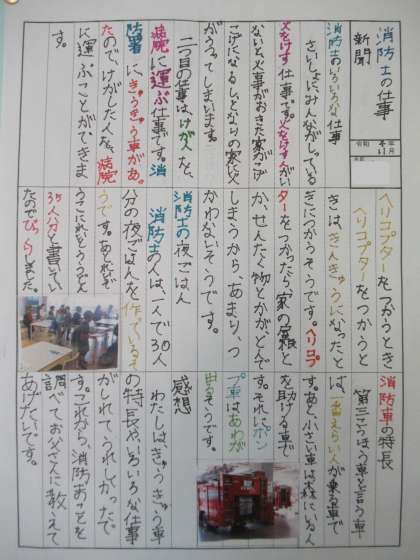 消防士の仕事
新聞
令和 年
11月
消防士のいろいろな仕事
さいしょに、みんながしっている
火をけす仕事です。火をけすがい
ないと火事がおきた家がこげ
こげになるしとなりの家に火
がうつってしまいます。
二つ目の仕事は、けが人を、
病院に運ぶ仕事です。消
防署にきゅうきゅう車があっ
たので、けがした人を、病院
に運ぶことができま
す。
ヘリコプターをつかうとき
ヘリコプターをつかうと
きは、きんきゅうになったと
きにつかうそうです。ヘリコプ
ターをつかったら家の窓と
か、せんたく物とかが、とんで
しまうから、あまり、つ
かわないそうです。
消防士の夜ごはん
消防士の人は、一人で30人
分の夜ごはんを作っているそ
うです。あとれぞ
うこにれいとううどん
35人分と書いてい
たのでびっくりしました。
消防車の特長
第三こうほう車と言う車
は、一番えらい人が乗る車で
す。あと小さい車は森にいる人
を助ける車で
す。それにポン
プ車はあわが
出るそうです。
感想
わたしはきゅうきゅう車
の特長や、いろいろな仕事
がしれて、うれしかったで
す。これから、消防のことを
調べてお父さんに教えて
あげたいです。